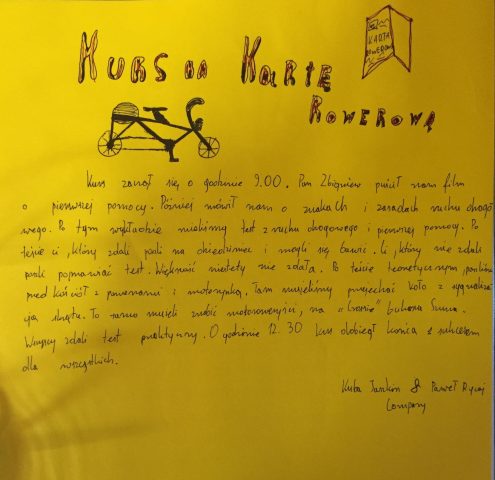 KURS NA KARTĘ
KARTA
ROWEROWA
ROWEROWĄ
Kurs zaczął się o godzinie 9.00. Pan Zbigniew puścił nam film
o pierwszej pomocy. Później mówił nam o znakach i zasadach ruchu drogo
wego. Po tym wykładzie mieliśmy test z ruchu drogowego i pierwszej pomocy. Po
teście ci, który zdali poszli na dziedziniec i mogli się bawić. Ci, który nie zdali
poszli poprawiać test. Większość niestety nie zdała. Po teście teoretycznym, poszliśmy
pred kościół z rowerami i motorynką. Tam musieliśmy przejechać koło z sygnaliza
cją skrętu. To samo musieli zrobić motorowerzyści, na
Wszyscy zdali test praktyczny. O godzinie 12.30 kurs dobiegł końca z sukcesem
dla wszystkich.
Kuba & Paweł
Company